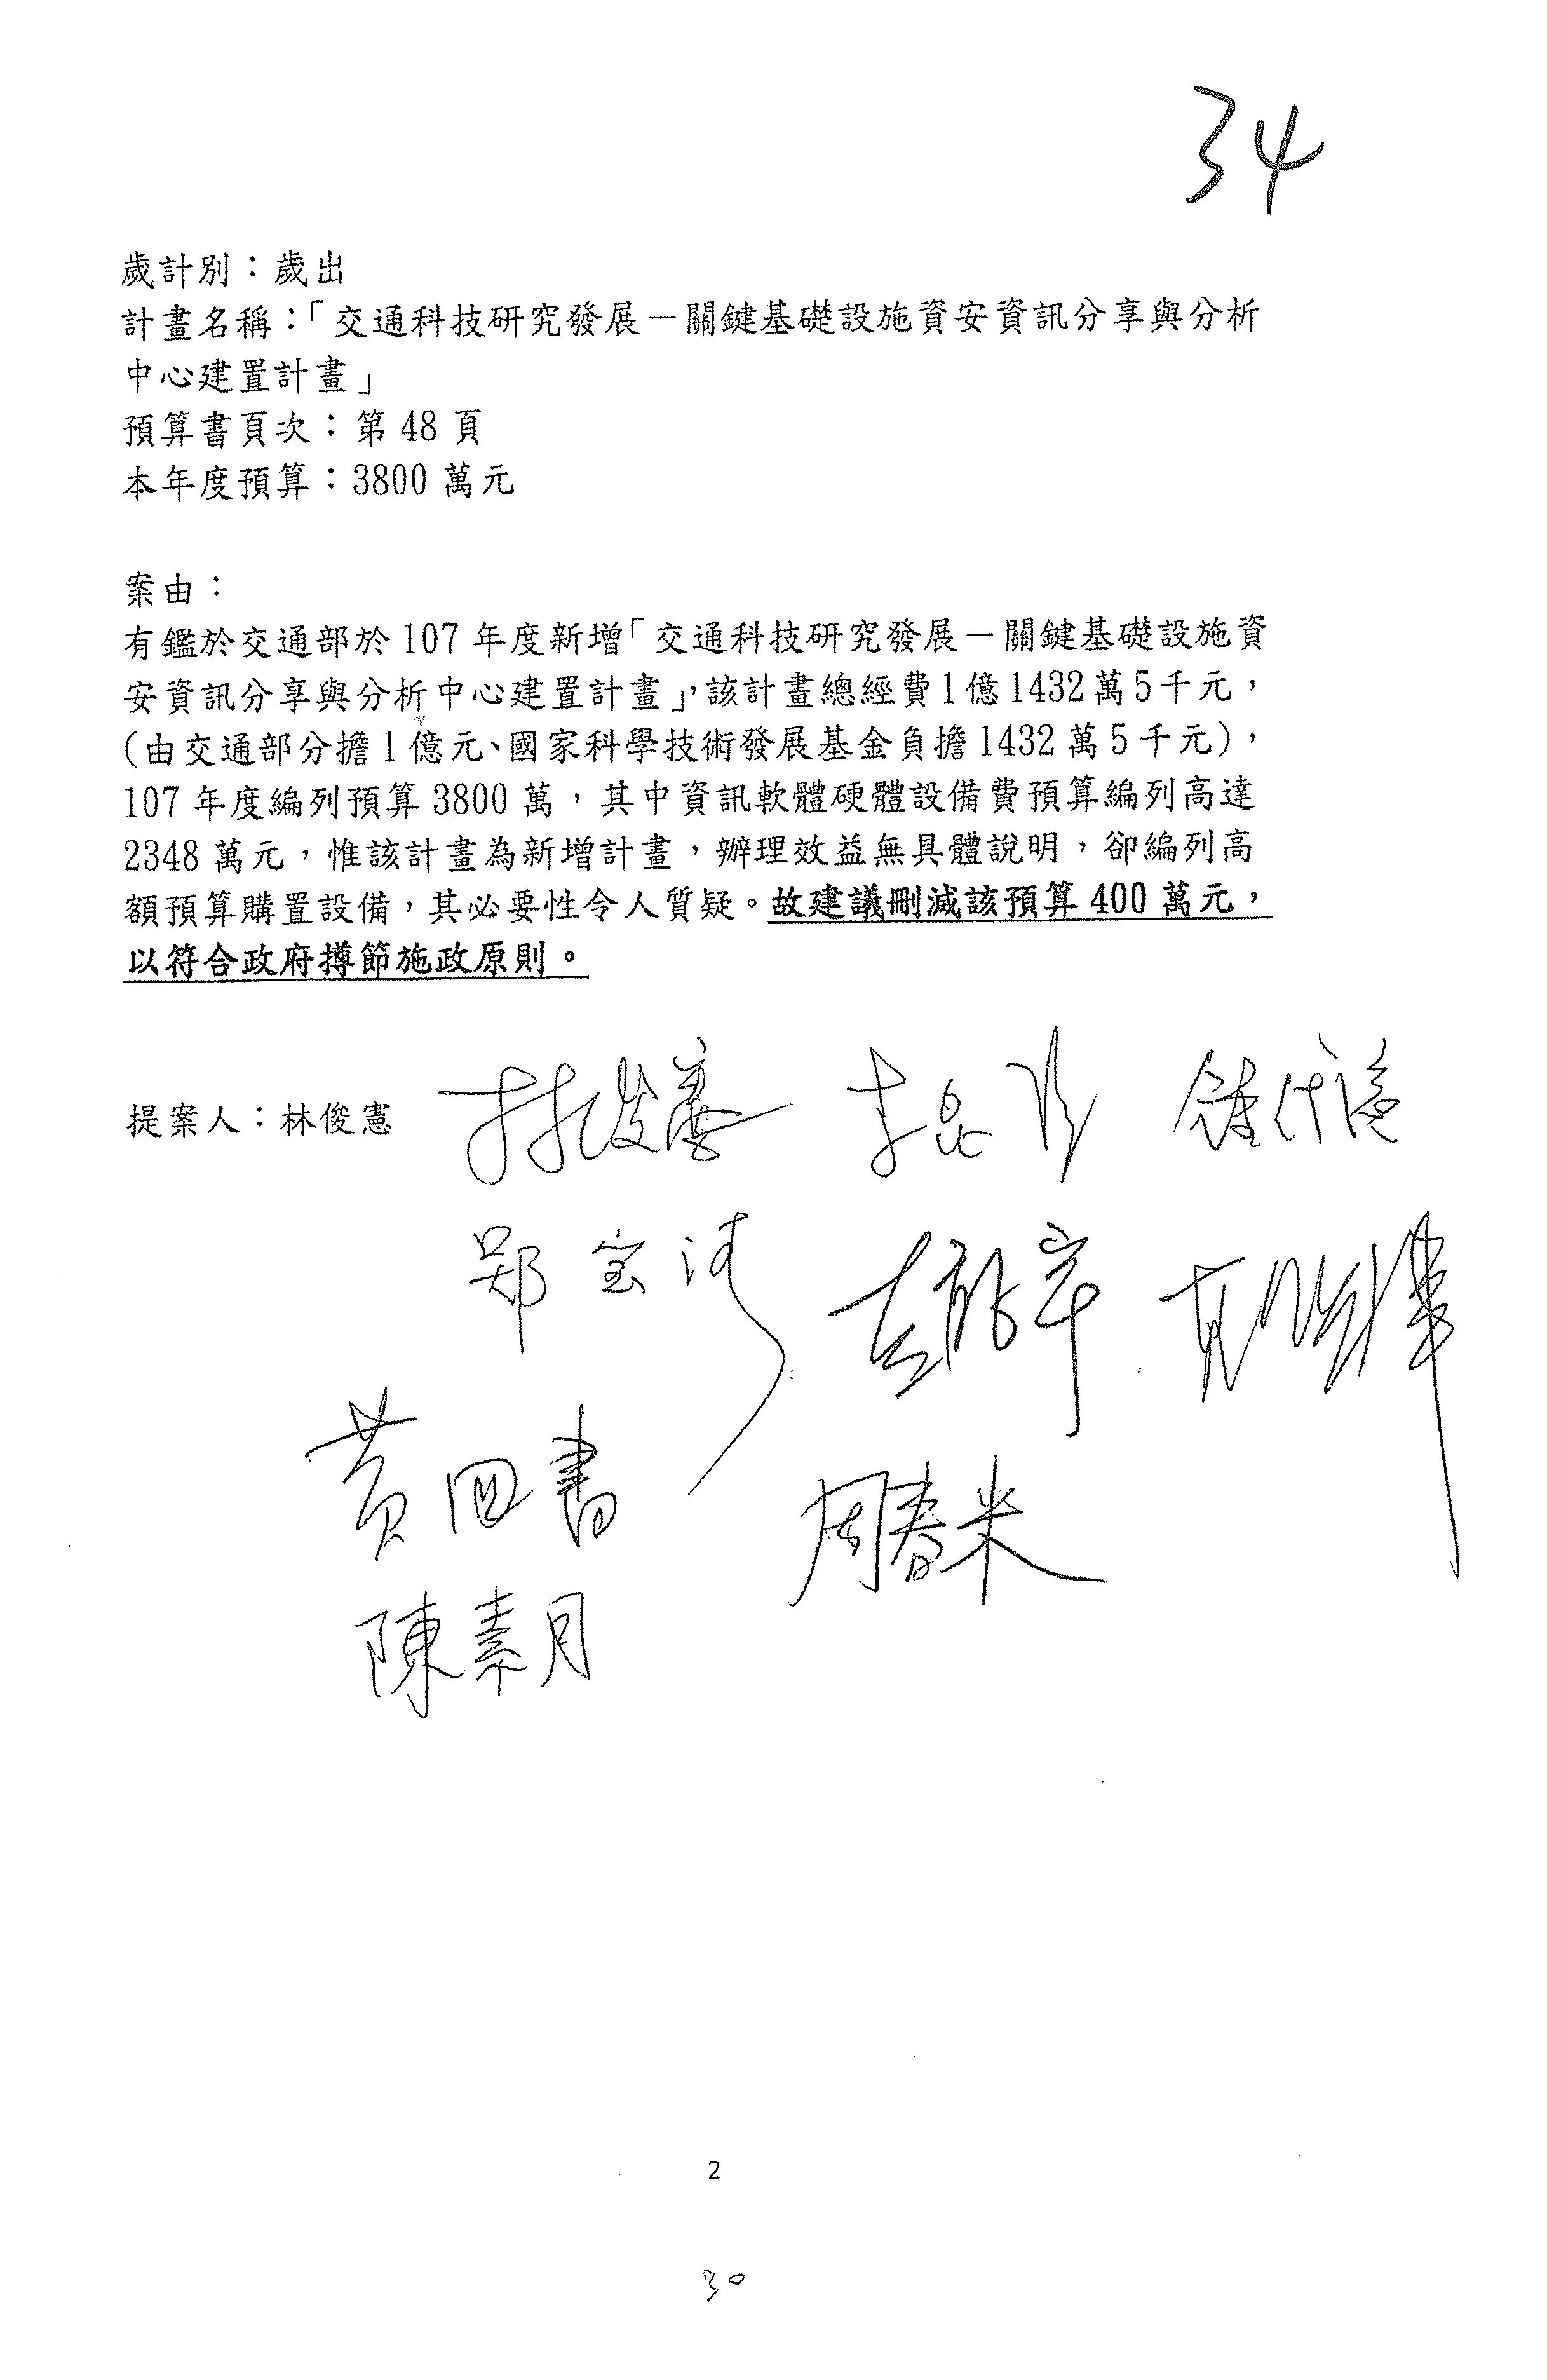 34
歲計別：歲出
計畫名稱：「交通科技研究發展－關鍵基礎設施資安資訊分享與分析
中心建置計畫」
預算書頁次：第 48 頁
本年度預算：3800 萬元
案由：
有鑑於交通部於 107 年度新增「交通科技研究發展－關鍵基礎設施資
安資訊分享與分析中心建置計畫」，該計畫總經費 1 億 1432 萬 5 千元，
（由交通部分擔 1 億元、國家科學技術發展基金負擔 1432 萬 5 千元），
107 年度編列預算 3800 萬，其中資訊軟體硬體設備費預算編列高達
2348 萬元，惟該計畫為新增計畫，辦理效益無具體說明，卻編列高
額預算購置設備，其必要性令人質疑。故建議刪減該預算 400 萬元，
以符合政府撙節施政原則。
提案人：林俊憲 林俊憲 李昆澤
郑宝清
黃国書 周春米
陳素月
2
30